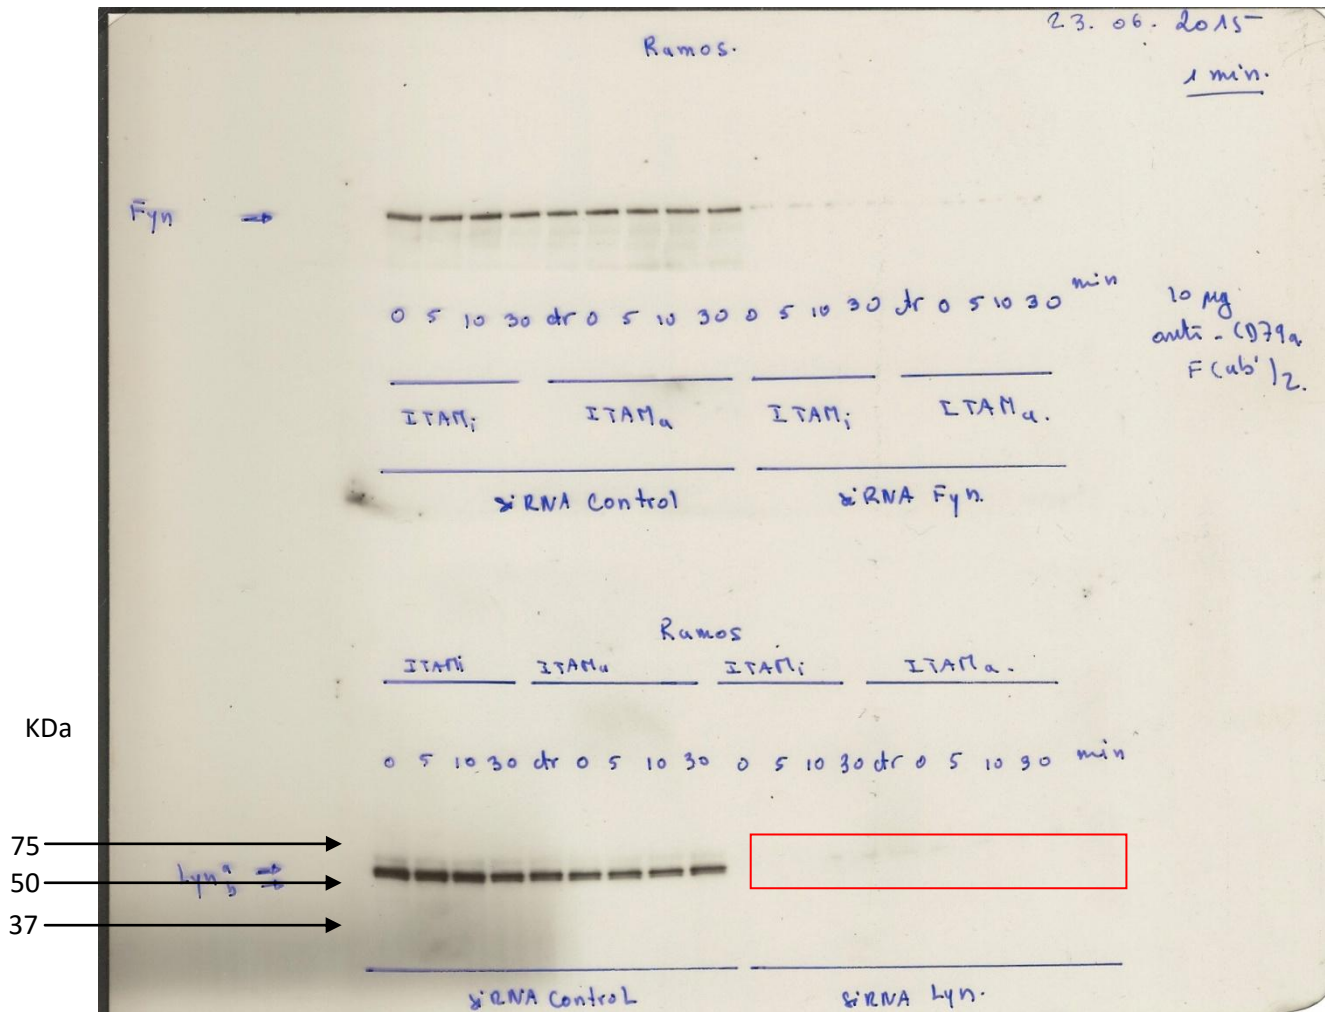 23. 06. 2015
Ramos.
1 min.
Fyn
0 5 10 30 ctr 0 5 10 30 0 5 10 30 ctr 0 5 10 30 min
10 µg
anti-CD79a
F(ab')2.
ITAMi ITAMa ITAMi ITAMa.
siRNA Control siRNA Fyn.
Ramos
ITAMi ITAMa ITAMi ITAMa.
KDa
0 5 10 30 ctr 0 5 10 30 0 5 10 30 ctr 0 5 10 30 min
75
Lyn a
b
50
37
siRNA Control siRNA Lyn.